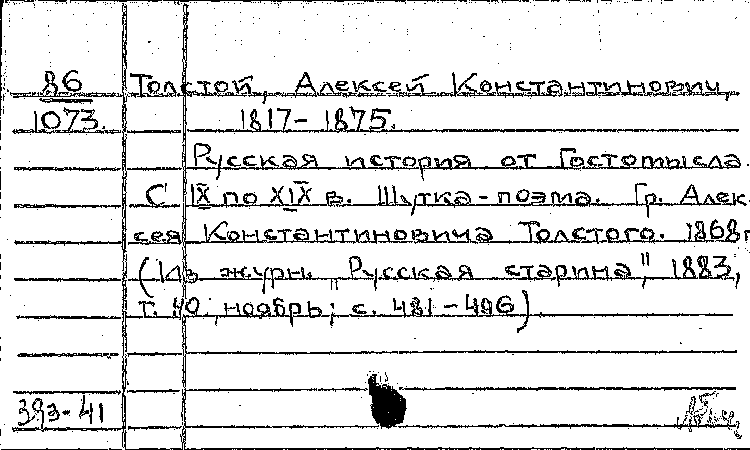 86 Толстой, Алексей Константинович,
1073. 1817-1875.
Русская история от Гостомысла.
С IX по XIX в. Шутка-поэма. Гр. Алек-
сея Константиновича Толстого. 1868г
(Из журн. „Русская старина", 1883,
т. 40; ноябрь; с. 481-496).
393-41